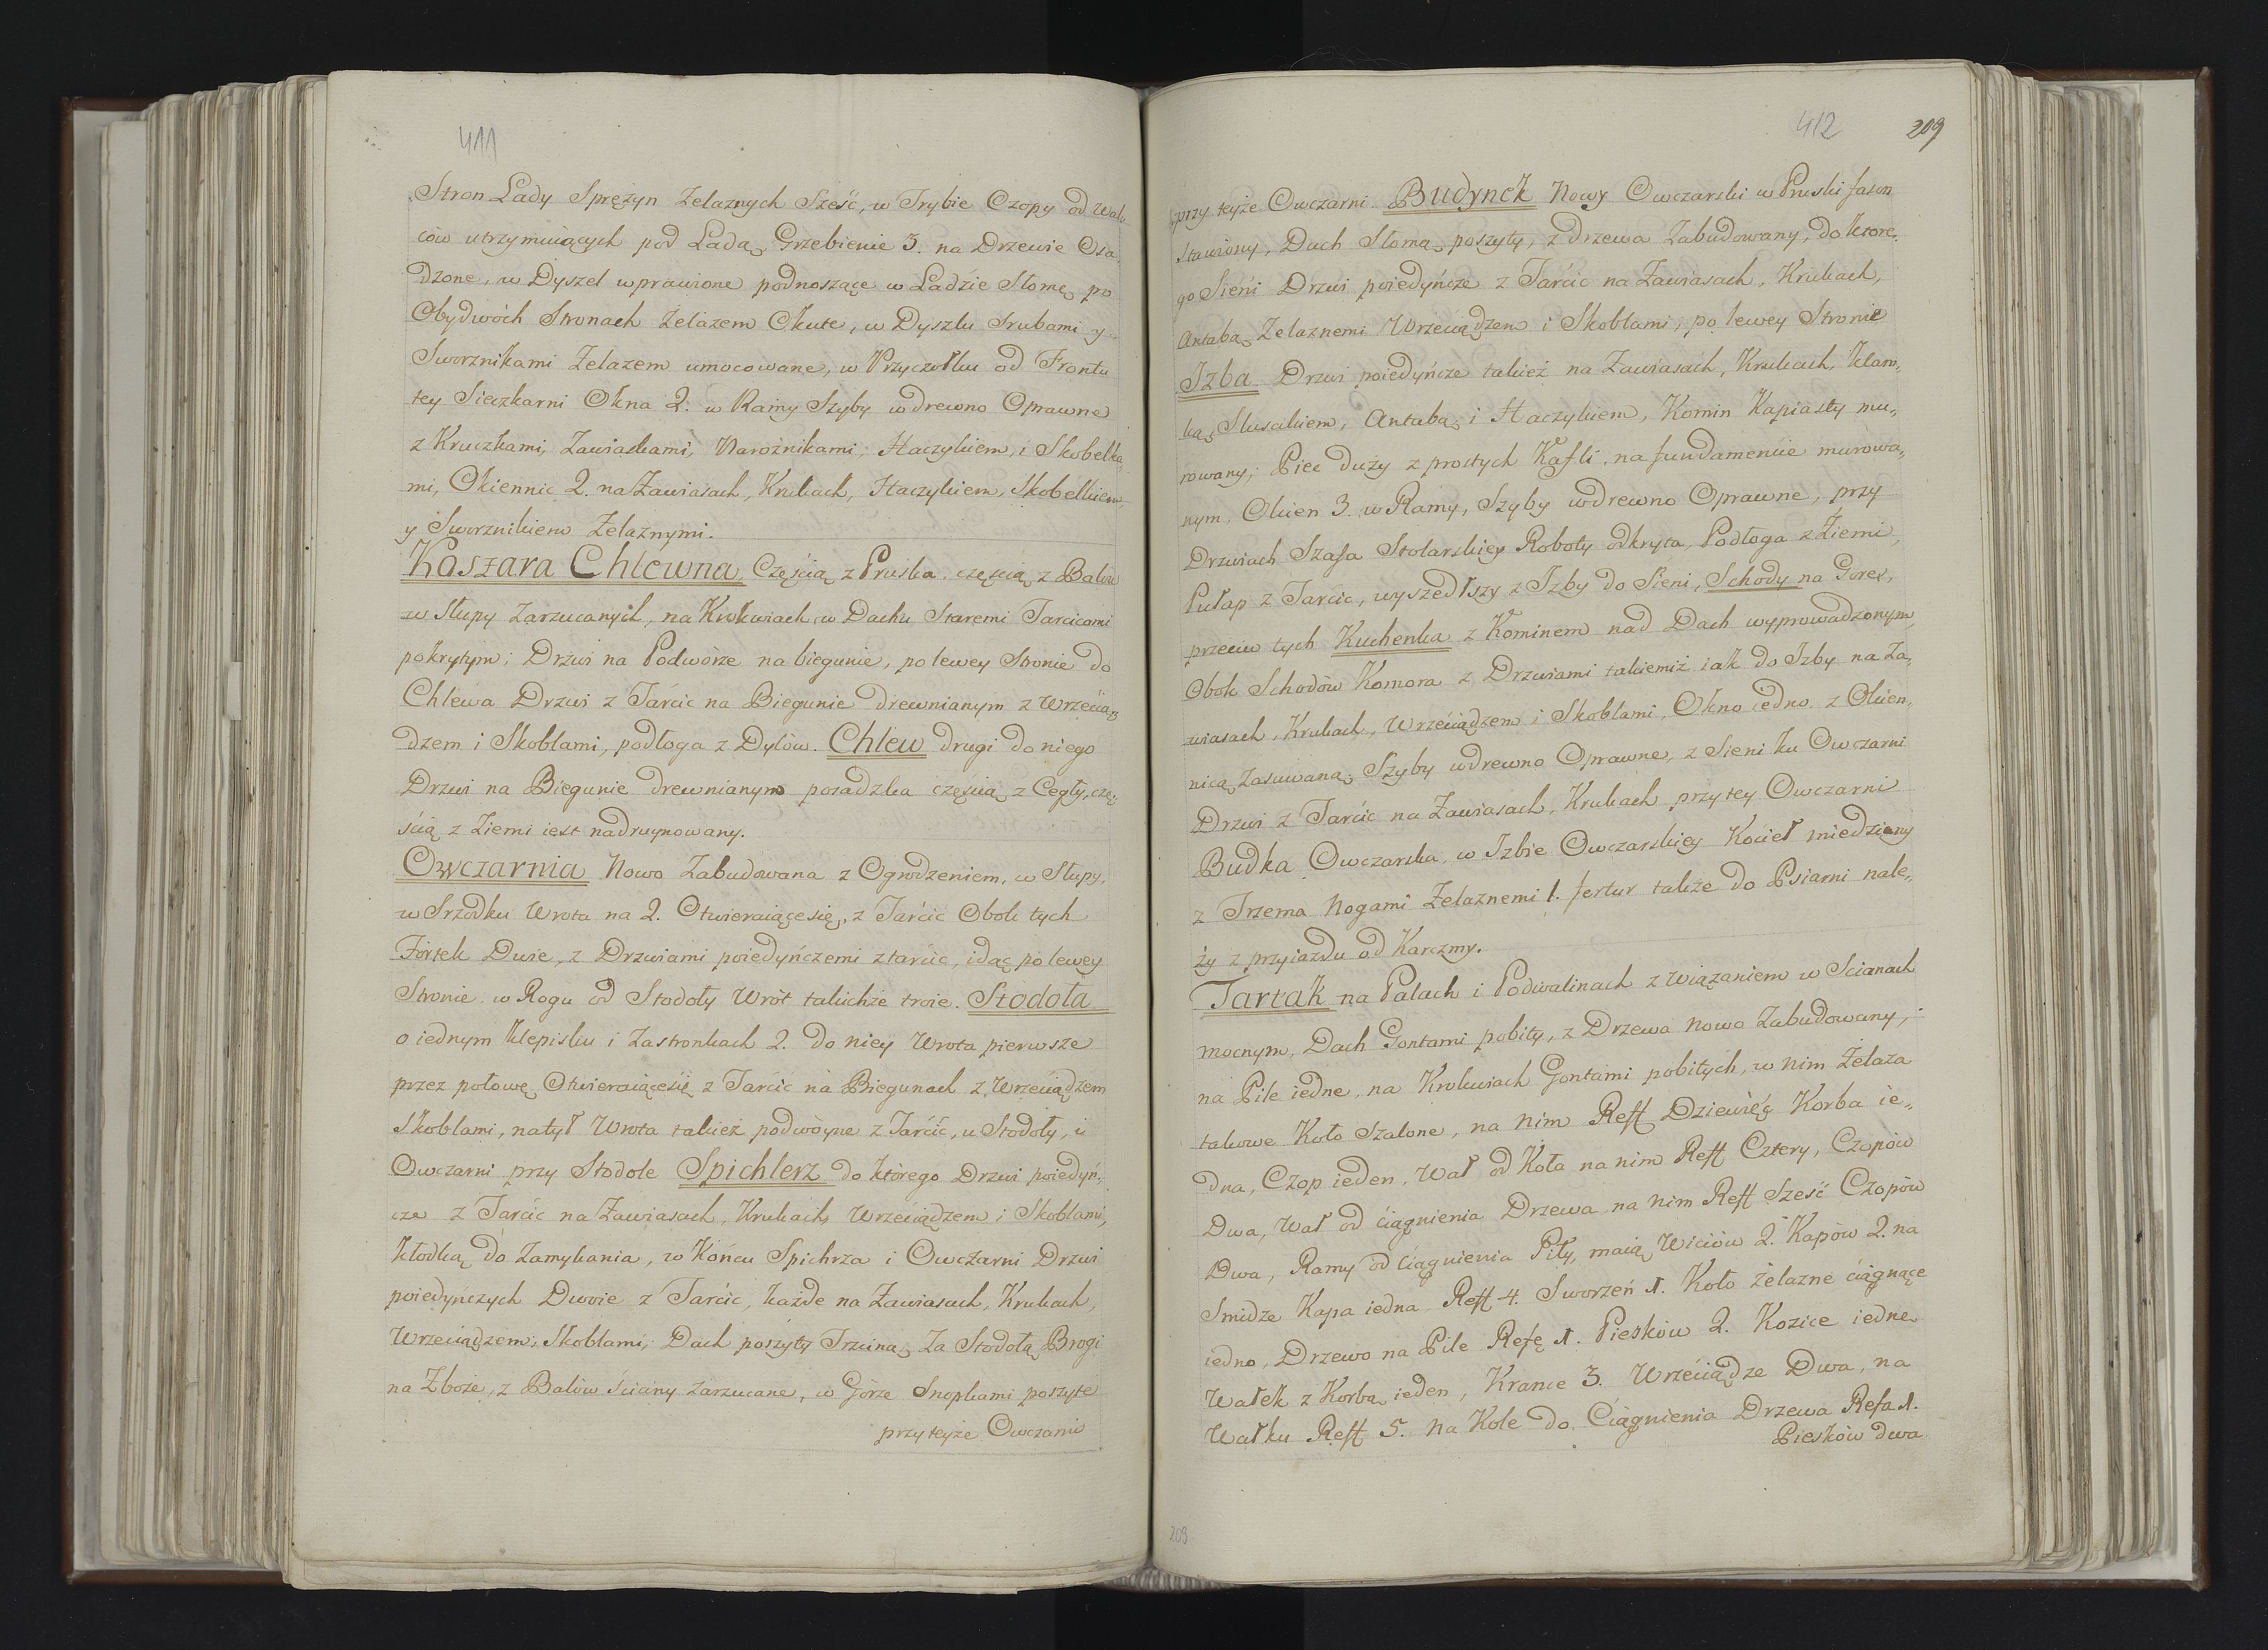 411
Stron Lady Sprężyn Zelaznych Sześć, w Trybie Czopy od Wal„
ców utrzymuiących pod Ladą, Grzebienie 3. na Drzewie Osa„
dzone, w Dyszel wprawione podnoszące w Ladzie Słomę po
Obydwóch Stronach Żelazem Okute, w Dyszlu Srubami y
Sworznikami Zelazem umocowane, w Przyczołku od Frontu
tey Sieczkarni Okna 2. w Ramy Szyby wdrewno Oprawne
z Kruczkami, Zawiaskami, Narożnikami, Haczykiem, i Skobelka„
mi, Okiennic 2. na Zawiasach, Krukach, Haczykiem, Skobelkiem,
y Sworznikiem Zelaznymi.
Koszara Chlewna Częścią z Pruska, częścią z Balów
w Słupy Zarzucanych, na Krokwiach w Dachu Staremi Tarcicami
pokrytym; Drzwi na Podworze na biegunie, po lewey Stronie do
Chlewa Drzwi z Tarcic na Biegunie drewnianym z Wrzecią„
dzem i Skoblami, podłoga z Dylów. Chlew drugi do niego
Drzwi na Biegunie drewnianym posadzka częścią z Cegły, czę„
ścią z Ziemi iest nadruynowany.
Owczarnia Nowo Zabudowana z Ogrodzeniem, w Słupy,
w Srzodku Wrota na 2. Otwieraiące się, z Tarcic Obok tych
Fortek Dwie, z Drzwiami poiedyńczemi z tarcic, idąc po lewey
Stronie w Rogu od Stodoły Wrót takichże troie. Stodoła
o iednym klepisku i Zastronkach 2. do niey Wrota pierwsze
przez połowę Otwieraiące się z Tarcic na Biegunach z Wrzeciądzem
Skoblami, natył Wrota takież podwóyne z Tarcic, u Stodoły, i
Owczarni przy Stodole Spichlerz do którego Drzwi poiedyń„
cze z Tarcic na Zawiasach, Krukach, Wrzeciądzem i Skoblami,
kłodką do Zamykania, w Końcu Spichrza i Owczarni Drzwi
poiedyńczych Dwoie z Tarcic, każde na Zawiasach, Krukach,
Wrzeciądzem, Skoblami, Dach poszyty Trzciną, Za Stodołą Brogi
na Zboże, z Balów sciany zarzucane, w Górze Snopkami poszyte
przy teyże Owczarni
412 209
przy teyże Owczarni. Budynek Nowy Owczarski w Pruski fason
stawiony, Dach Słomą poszyty, z drzewa Zabudowany, do ktore„
go Sieni Drzwi poiedyńcze z Tarcic na Zawiasach, Krukach,
Antabą Zelaznemi Wrzeciądzem i Skoblami, po lewey Stronie
Izba Drzwi poiedyńcze takież na Zawiasach, Krukach, klam„
ką, Skuscikiem, Antabą, i Haczykiem, Komin Kapiasty mu„
rowany, Piec duży z prostych Kafli, na fundamencie murowa„
nym, Okien 3. w Ramy, Szyby wdrewno Oprawne, przy
Drzwiach Szafa Stolarskiey Roboty odkryta, Podłoga z Ziemi,
Pułap z Tarcic, wyszedłszy z Izby do Sieni, Schody na Gorę,
przeciw tych Kuchenka z Kominem nad Dach wyprowadzonym,
Obok Schodów Komora z Drzwiami takiemiż iak do Izby na Za„
wiasach, Krukach, Wrzeciądzem i Skoblami, Okno iedno z Okien„
nicą Zasuwaną, Szyby wdrewno Oprawne, z Sieni ku Owczarni
Drzwi z Tarcic na Zawiasach, Krukach przy tey Owczarni
Budka Owczarska, w Izbie Owczarskiey Kocieł miedziany
z Trzema Nogami Zelaznemi 1. fertur także do Psiarni nale„
ży z przyiazdu od Karczmy.
Tartak na Palach i Podwalinach z wiązaniem w Scianach
mocnym, Dach Gontami pobity, z Drzewa nowo Zabudowany,
na Pile iedne, na Krokwiach Gontami pobitych, w nim Zelaza
takowe Koło Szalone, na nim Reff Dziewięć Korba ie„
dna, Czop ieden, Wał od Koła na nim Reff Cztery, Czopów
Dwa, Wał od ciągnienia Drzewa na nim Reff Sześć Czopów
Dwa, Ramy od Ciągnienia Piły, maią Wiciów 2. Kapów 2. na
Smidze Kapa iedna Reff 4. Sworzeń 1. Koło żelazne ciągnące
iedno, Drzewo na Pile Refę 1. Piesków 2. Kozice iedne
Wałek z Korbą ieden, Krance 3. Wrzeciądze Dwa, na
Wałku Reff 5. Na Kole do Ciągnienia Drzewa Refa 1.
Piesków dwa
209